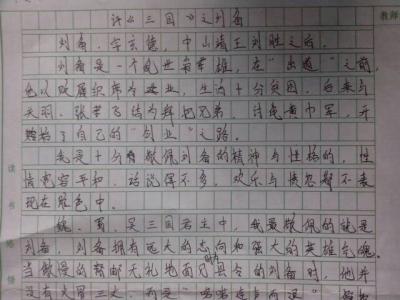 评《三国》之刘备
教师
刘备,字玄德,中山靖王刘胜之后。
刘备是一个乱世枭雄,在“出道”之前,
他以贩履织席为业,生活十分贫困,后来与
关羽、张飞结为拜把兄弟,讨伐黄巾军,开
始了自己的“创业”之路。
我是十分敬佩刘备的精神与性格的,性
情宽容平和,话说得不多,欢乐与愤怒都不表
现在脸色中。
魏、蜀、吴三国君主中,我最敬佩的就是
刘备,刘备拥有远大的志向和强大的英雄气魄。
当傲慢的督邮无礼地面见县令的刘备时,他并
没有大